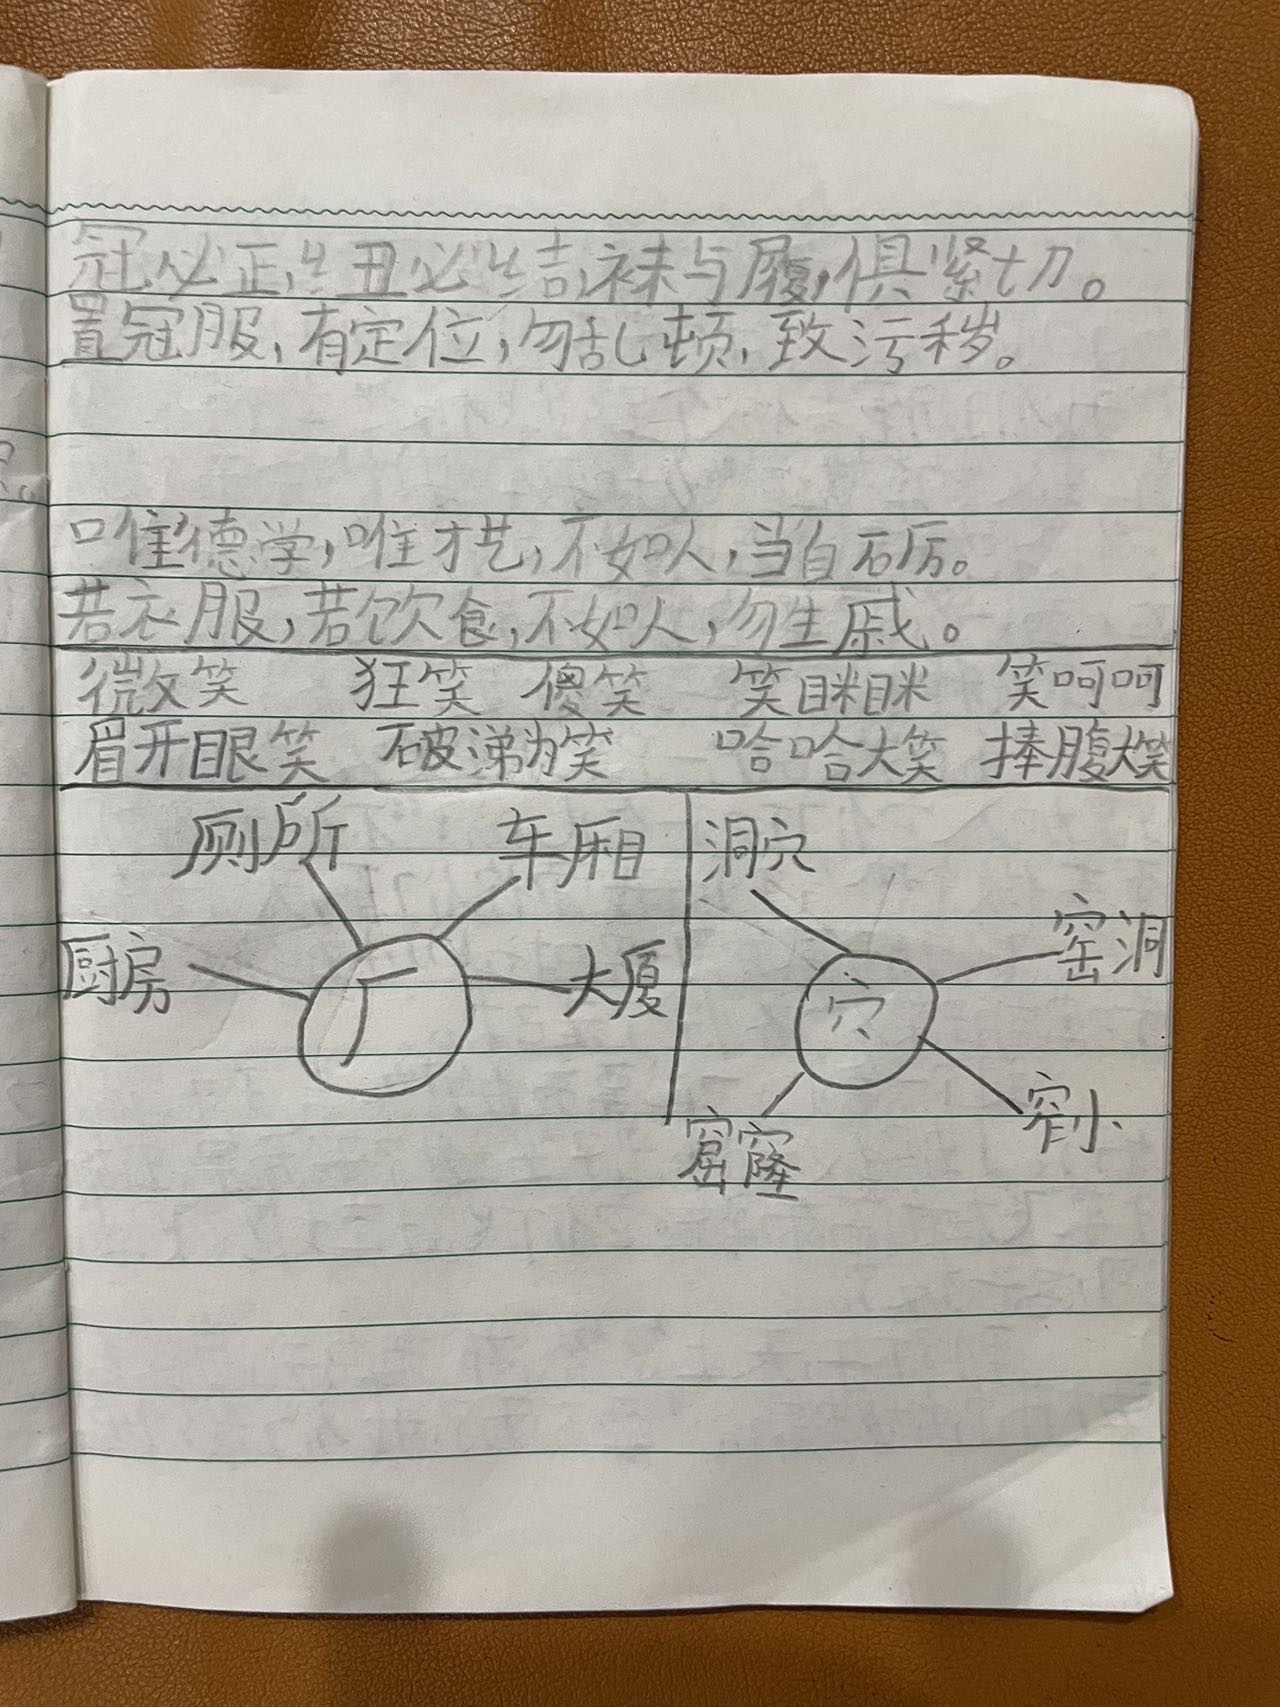 冠必正,纽必结,袜与履,俱紧切。
置冠服,有定位,勿乱顿,致污秽。
唯德学,唯才艺,不如人,当自砺。
若衣服,若饮食,不如人,勿生戚。
微笑 狂笑 傻笑 笑眯眯 笑呵呵
眉开眼笑 破涕为笑 哈哈大笑 捧腹大笑
厕所 车厢 洞穴
厨房 大厦 窑洞
厂 穴
窟窿 窄小